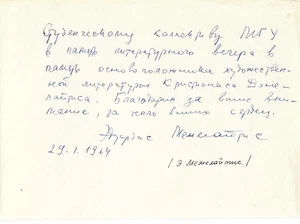 Студенческому коллективу МГУ
в память литературного вечера в
память основоположника художествен-
ной литературы Кристионаса Доне-
лайтиса. Благодарим за ваше вни-
мание, за тепло ваших сердец.
Эдуардас Межелайтис
29.1.1964
/Э. Межелайтис/